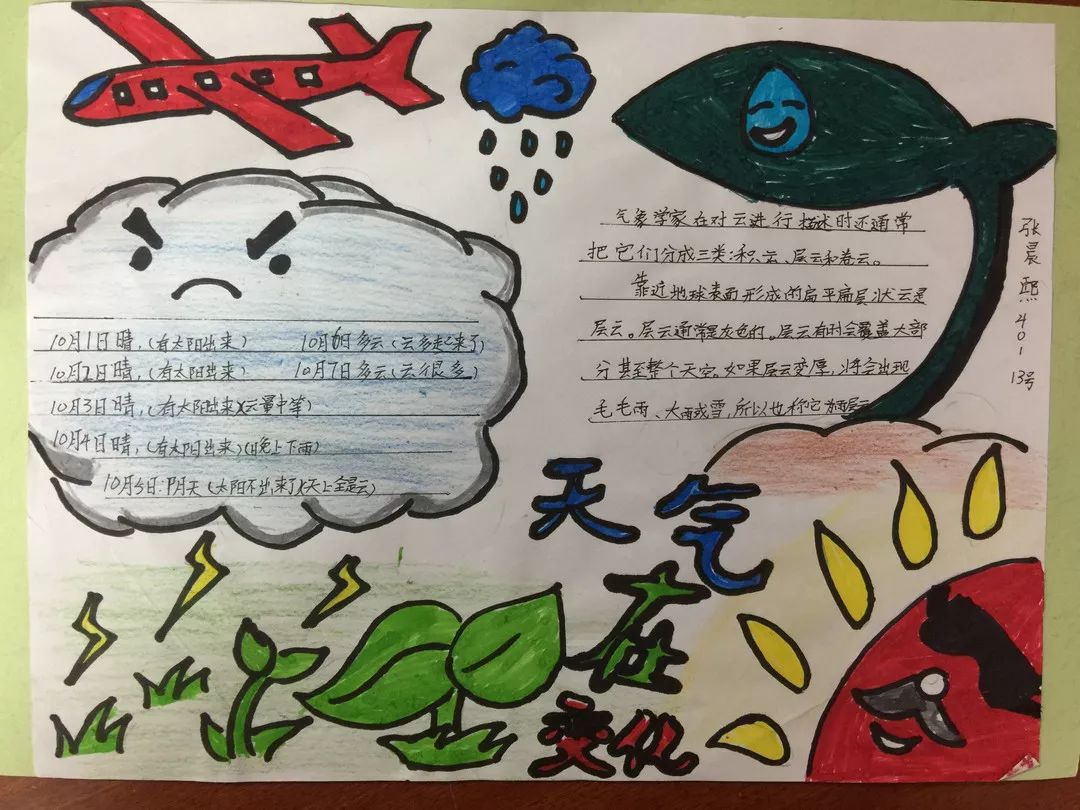 10月1日晴,(有太阳出来)
10月6日多云(云多起来了)
10月2日晴,(有太阳出来)
10月7日多云(云很多)
10月3日晴,(有太阳出来)(云量中等)
10月4日晴,(有太阳出来)(晚上下雨)
10月5日:阴天(太阳不出来了)(天上全是云)
气象学家在对云进行描述时还通常
把它们分成三类:积云、层云和卷云。
靠近地球表面形成的扁平扁层状云是
层云。层云通常是灰色的。层云有时会覆盖大部
分甚至整个天空。如果层云变厚,将会出现
毛毛雨、大雨或雪,所以也称它为雨层云
张晨熙401 13号
天气
在
变化